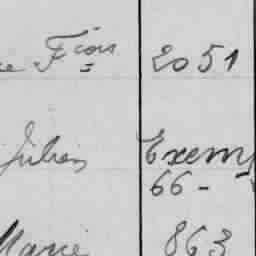 Fçois 2051
Julien Exem
66 -
Marie 863